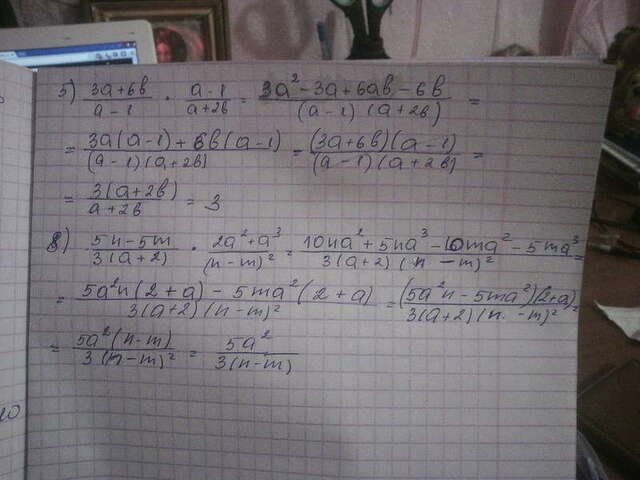 5) (3a+6b)/(a-1) · (a-1)/(a+2b) = (3a²-3a+6ab-6b)/((a-1)(a+2b)) =
= (3a(a-1)+6b(a-1))/((a-1)(a+2b)) = ((3a+6b)(a-1))/((a-1)(a+2b)) =
= (3(a+2b))/(a+2b) = 3
8) (5n-5m)/(3(a+2)) · (2a²+a³)/((n-m)²) = (10na²+5na³-10ma²-5ma³)/(3(a+2)(n-m)²) =
= (5a²n(2+a)-5ma²(2+a))/(3(a+2)(n-m)²) = ((5a²n-5ma²)(2+a))/(3(a+2)(n-m)²) =
= (5a²(n-m))/(3(n-m)²) = (5a²)/(3(n-m))